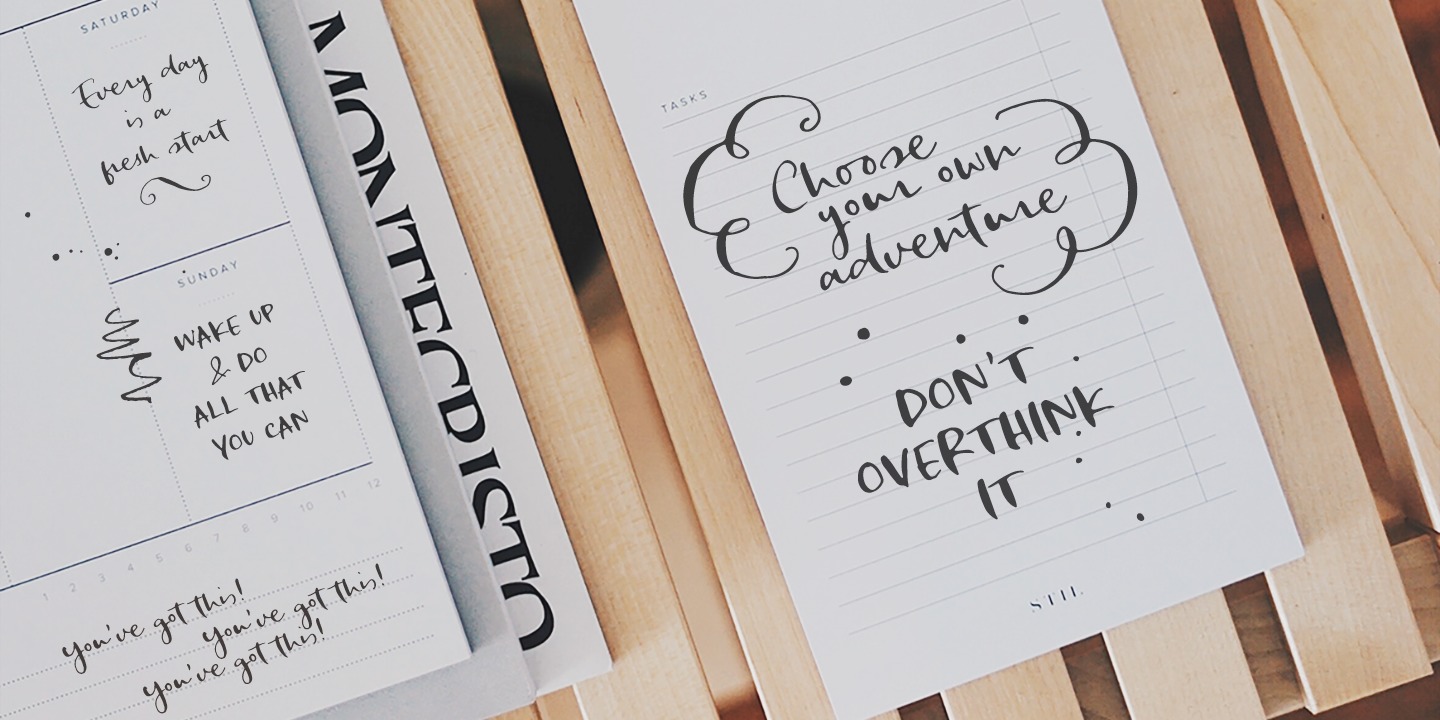 SATURDAY
Every day
is a
fresh start
SUNDAY
WAKE UP
& DO
ALL THAT
YOU CAN
1 2 3 4 5 6 7 8 9 10 11 12
you've got this!
you've got this!
you've got this!
MONTECRISTO
TASKS
Choose
your own
adventure
DON'T
OVERTHINK
IT
STIL